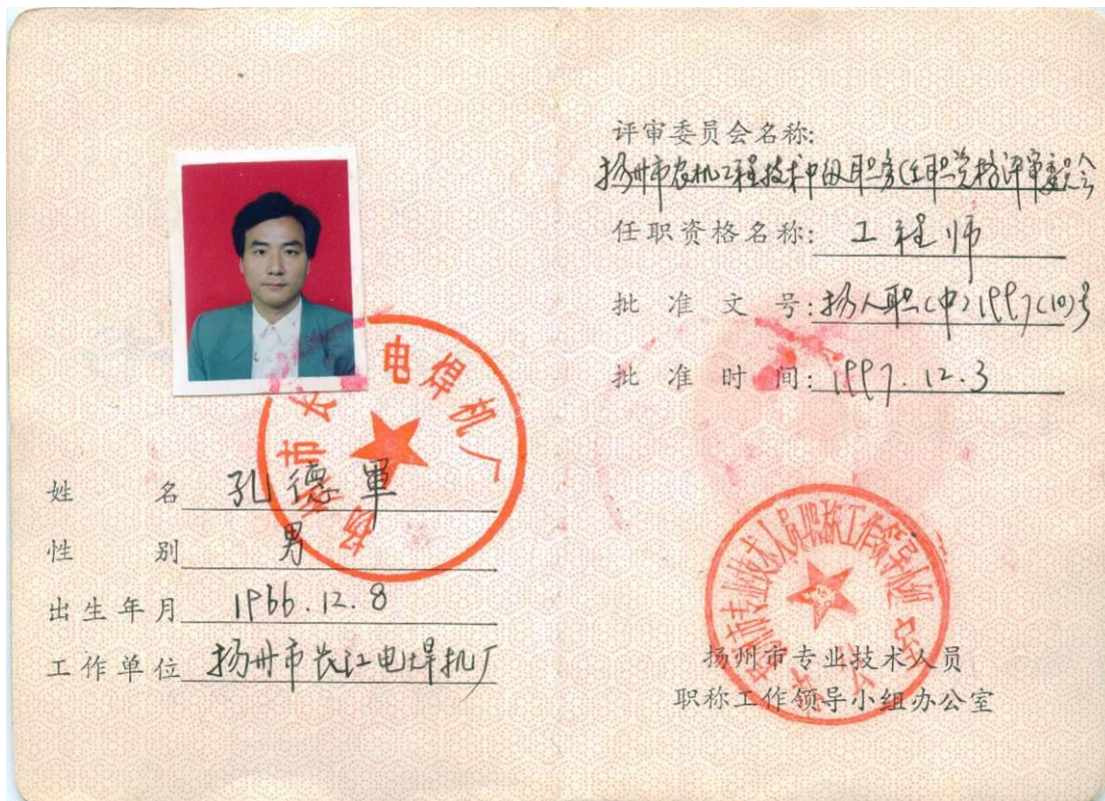 姓名 孔德軍
性别 男
出生年月 1966.12.8
工作单位 扬州市长江电焊机厂
扬州市长 电焊机厂
评审委员会名称:
扬州市农机工程技术中级职务任职资格评审委员会
任职资格名称: 工程师
批准文号: 扬人职(中)1997(10)号
批准时间: 1997.12.3
扬州市专业技术人员职称工作领导小组
办公室
扬州市专业技术人员
职称工作领导小组办公室